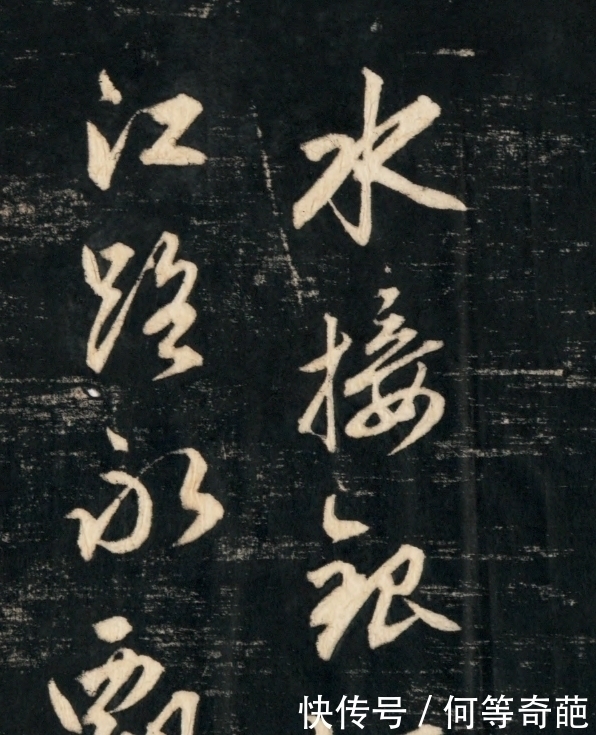 水接銀
江路永
快传号 / 何等奇葩